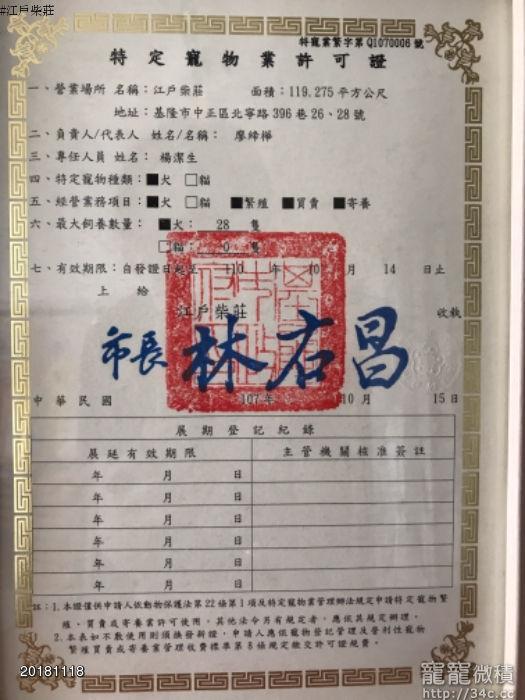 #江戶柴莊
特寵業繁字第Q1070006號
特定寵物業許可證
一、營業場所 名稱：江戶柴莊 面積：119.275 平方公尺
地址：基隆市中正區北寧路 396 巷 26、28 號
二、負責人/代表人 姓名/名稱： 廖締樺
三、專任人員 姓名： 楊潔生
四、特定寵物種類：■犬 □貓
五、經營業務項目：■犬 □貓 ■繁殖 ■買賣 ■寄養
六、最大飼養數量： ■犬： 28 隻
□貓： 0 隻
七、有效期限：自發證日起至 110 年 10 月 14 日止
上 給
江戶柴莊 收執
市長 林右昌
中華民國 107 年 10 月 15 日
展期登記紀錄
展延有效期限 主管機關核准簽註
年 月 日
年 月 日
年 月 日
年 月 日
年 月 日
年 月 日
註：1.本證僅供申請人依動物保護法第22條第1項及特定寵物業管理辦法規定申請特定寵物繁
殖、買賣或寄養業許可使用，其他法令另有規定者，應依其規定辦理。
2.本表如不敷使用則須換發新證，申請人應依寵物登記管理及營利性寵物
繁殖買賣或寄養業管理收費標準第8條規定繳交許可證規費。
20181118
寵寵微積
http://34c.cc